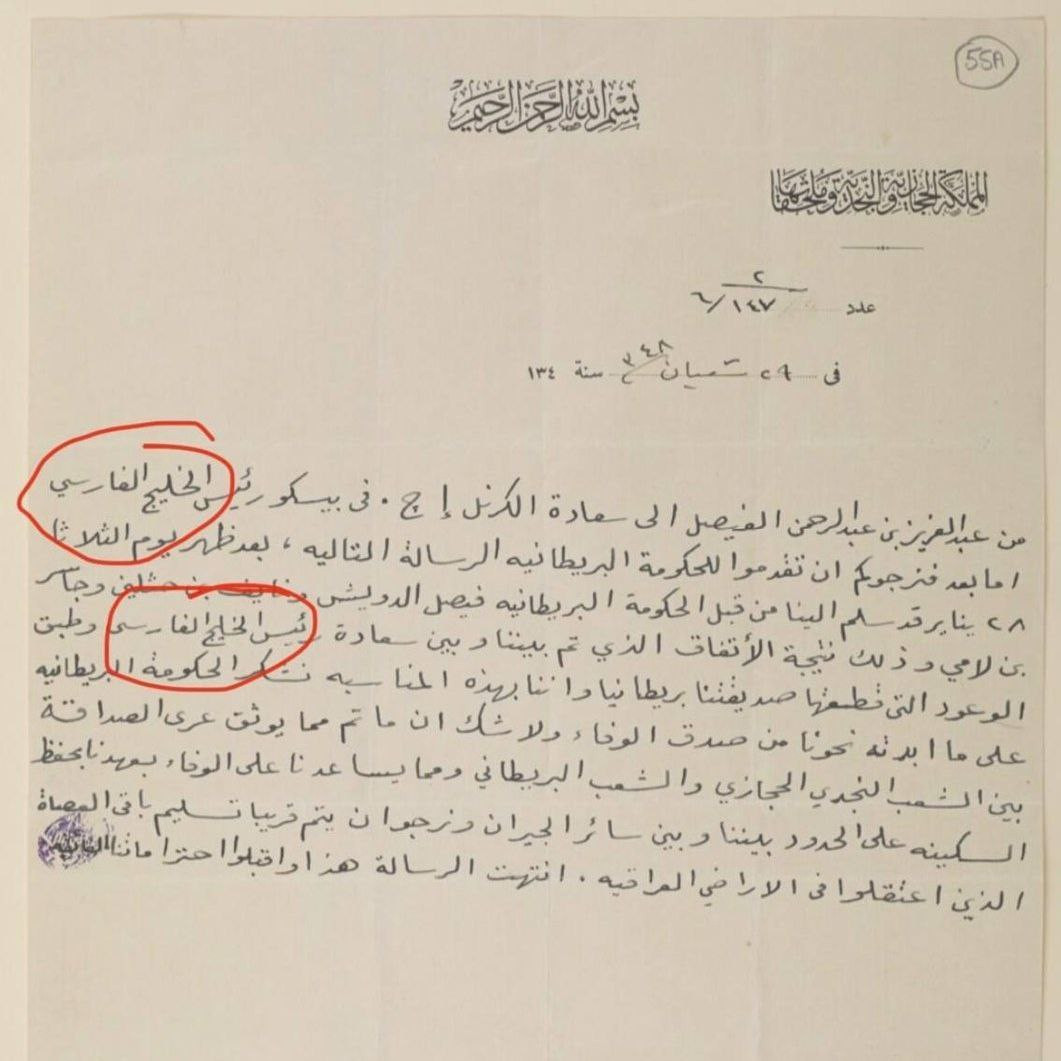 55A
بسم الله الرحمن الرحيم
المملكة الحجازية والنجدية وملحقاتها
عدد ٢ ٦/١٤٧
فى ٢٩ شعبان ٣٤٨ سنة ١٣٤
من عبدالعزيز بن عبدالرحمن الفيصل الى سعادة الكرنل إ ج . فى بيسكو رئيس الخليج الفارسي
اما بعد فنرجوكم ان تقدموا للحكومة البريطانيه الرسالة التاليه ، بعد ظهر يوم الثلاثا
٢٨ يناير قد سلم الينا من قبل الحكومة البريطانيه فيصل الدويش ونايف بن حثلين وجاسر
بن لامي وذلك نتيجة الأتفاق الذي تم بيننا وبين سعادة رئيس الخليج الفارسي وطبق
الوعود التى قطعتها صديقتنا بريطانيا واننا بهذه المناسبه نشكر الحكومة البريطانيه
على ما ابدته نحونا من صدق الوفاء ولا شك ان ما تم مما يوثق عرى الصداقة
بين الشعب النجدي الحجازي والشعب البريطاني ومما يساعدنا على الوفاء بعهدنا بحفظ
السكينه على الحدود بيننا وبين سائر الجيران ونرجوا ن يتم قريبا تسليم باقى العصاة
الذين اعتقلوا فى الاراضي العراقيه . انتهت الرسالة هذا واقبلوا احتراماتنا الفائقه